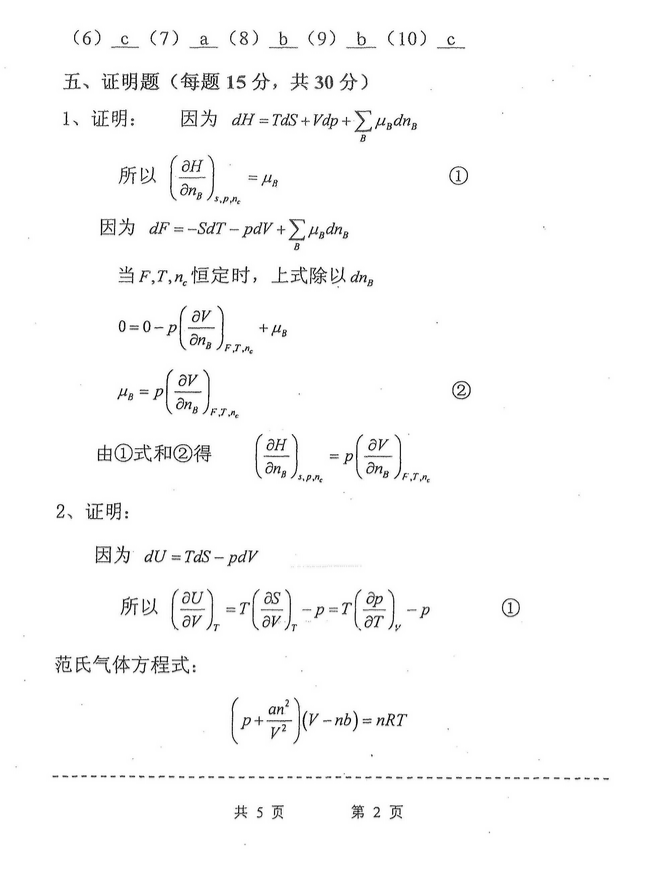 (6) c (7) a (8) b (9) b (10) c
五、证明题（每题 15 分，共 30 分）
1、证明： 因为 dH = TdS + Vdp + ∑_B μ_B dn_B
所以 (∂H/∂n_B)_{s,p,n_c} = μ_B ①
因为 dF = −SdT − pdV + ∑_B μ_B dn_B
当 F,T,n_c 恒定时，上式除以 dn_B
0 = 0 − p(∂V/∂n_B)_{F,T,n_c} + μ_B
μ_B = p(∂V/∂n_B)_{F,T,n_c} ②
由①式和②得 (∂H/∂n_B)_{s,p,n_c} = p(∂V/∂n_B)_{F,T,n_c}
2、证明：
因为 dU = TdS − pdV
所以 (∂U/∂V)_T = T(∂S/∂V)_T − p = T(∂p/∂T)_V − p ①
范氏气体方程式：
(p + an²/V²)(V − nb) = nRT
共 5 页 第 2 页